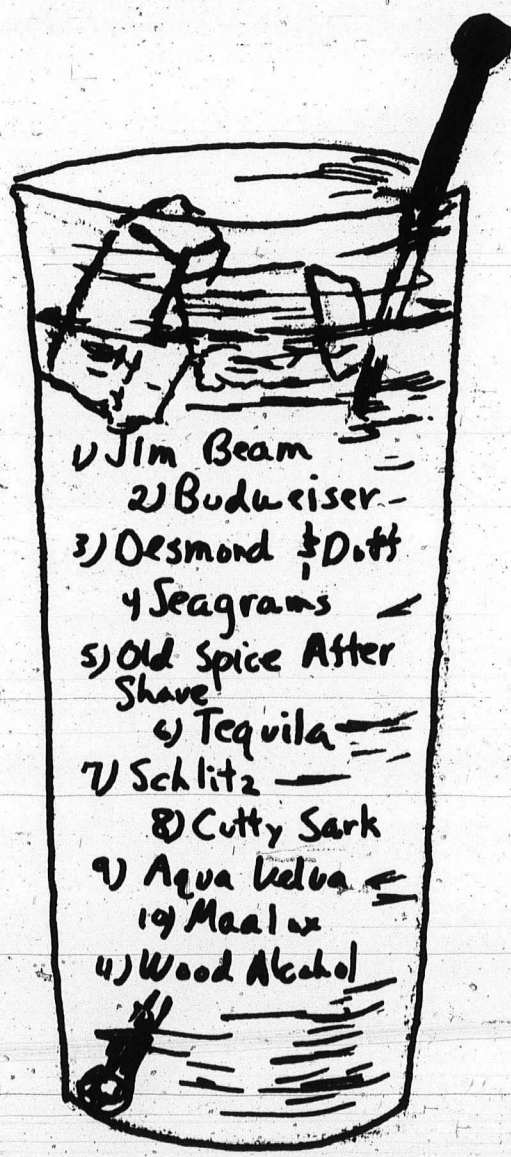 1) Jim Beam
2) Budweiser
3) Desmond & Duff
4 Seagrams
5) Old Spice After
Shave
6) Tequila
7) Schlitz
8) Cutty Sark
9) Aqua Velva
10) Maalox
11) Wood Alcohol